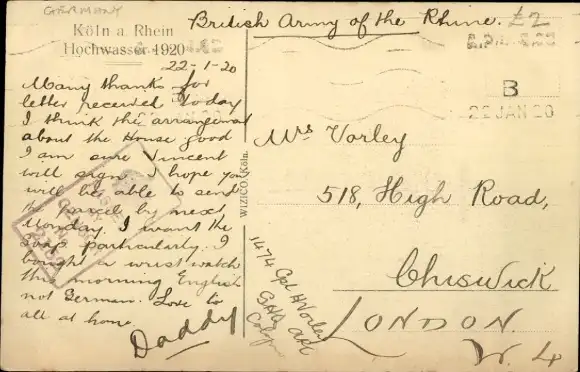 GERMANY
British Army of the Rhine. £2
Köln a. Rhein
Hochwasser 1920
22-1-20
Many thanks for
letter received today
I think the arrangement
about the House good
I am sure Vincent
will sign. I hope you
will be able to send
the parcel by next
Monday. I want the
soap particularly. I
bought a wrist watch
this morning English
not German. Love to
all at home
Daddy
WIZICO, Köln.
B
22 JAN 20
Mrs Vorley
518, High Road,
Chiswick
LONDON.
W. 4
1474 Cpl H Vorley
GHQ